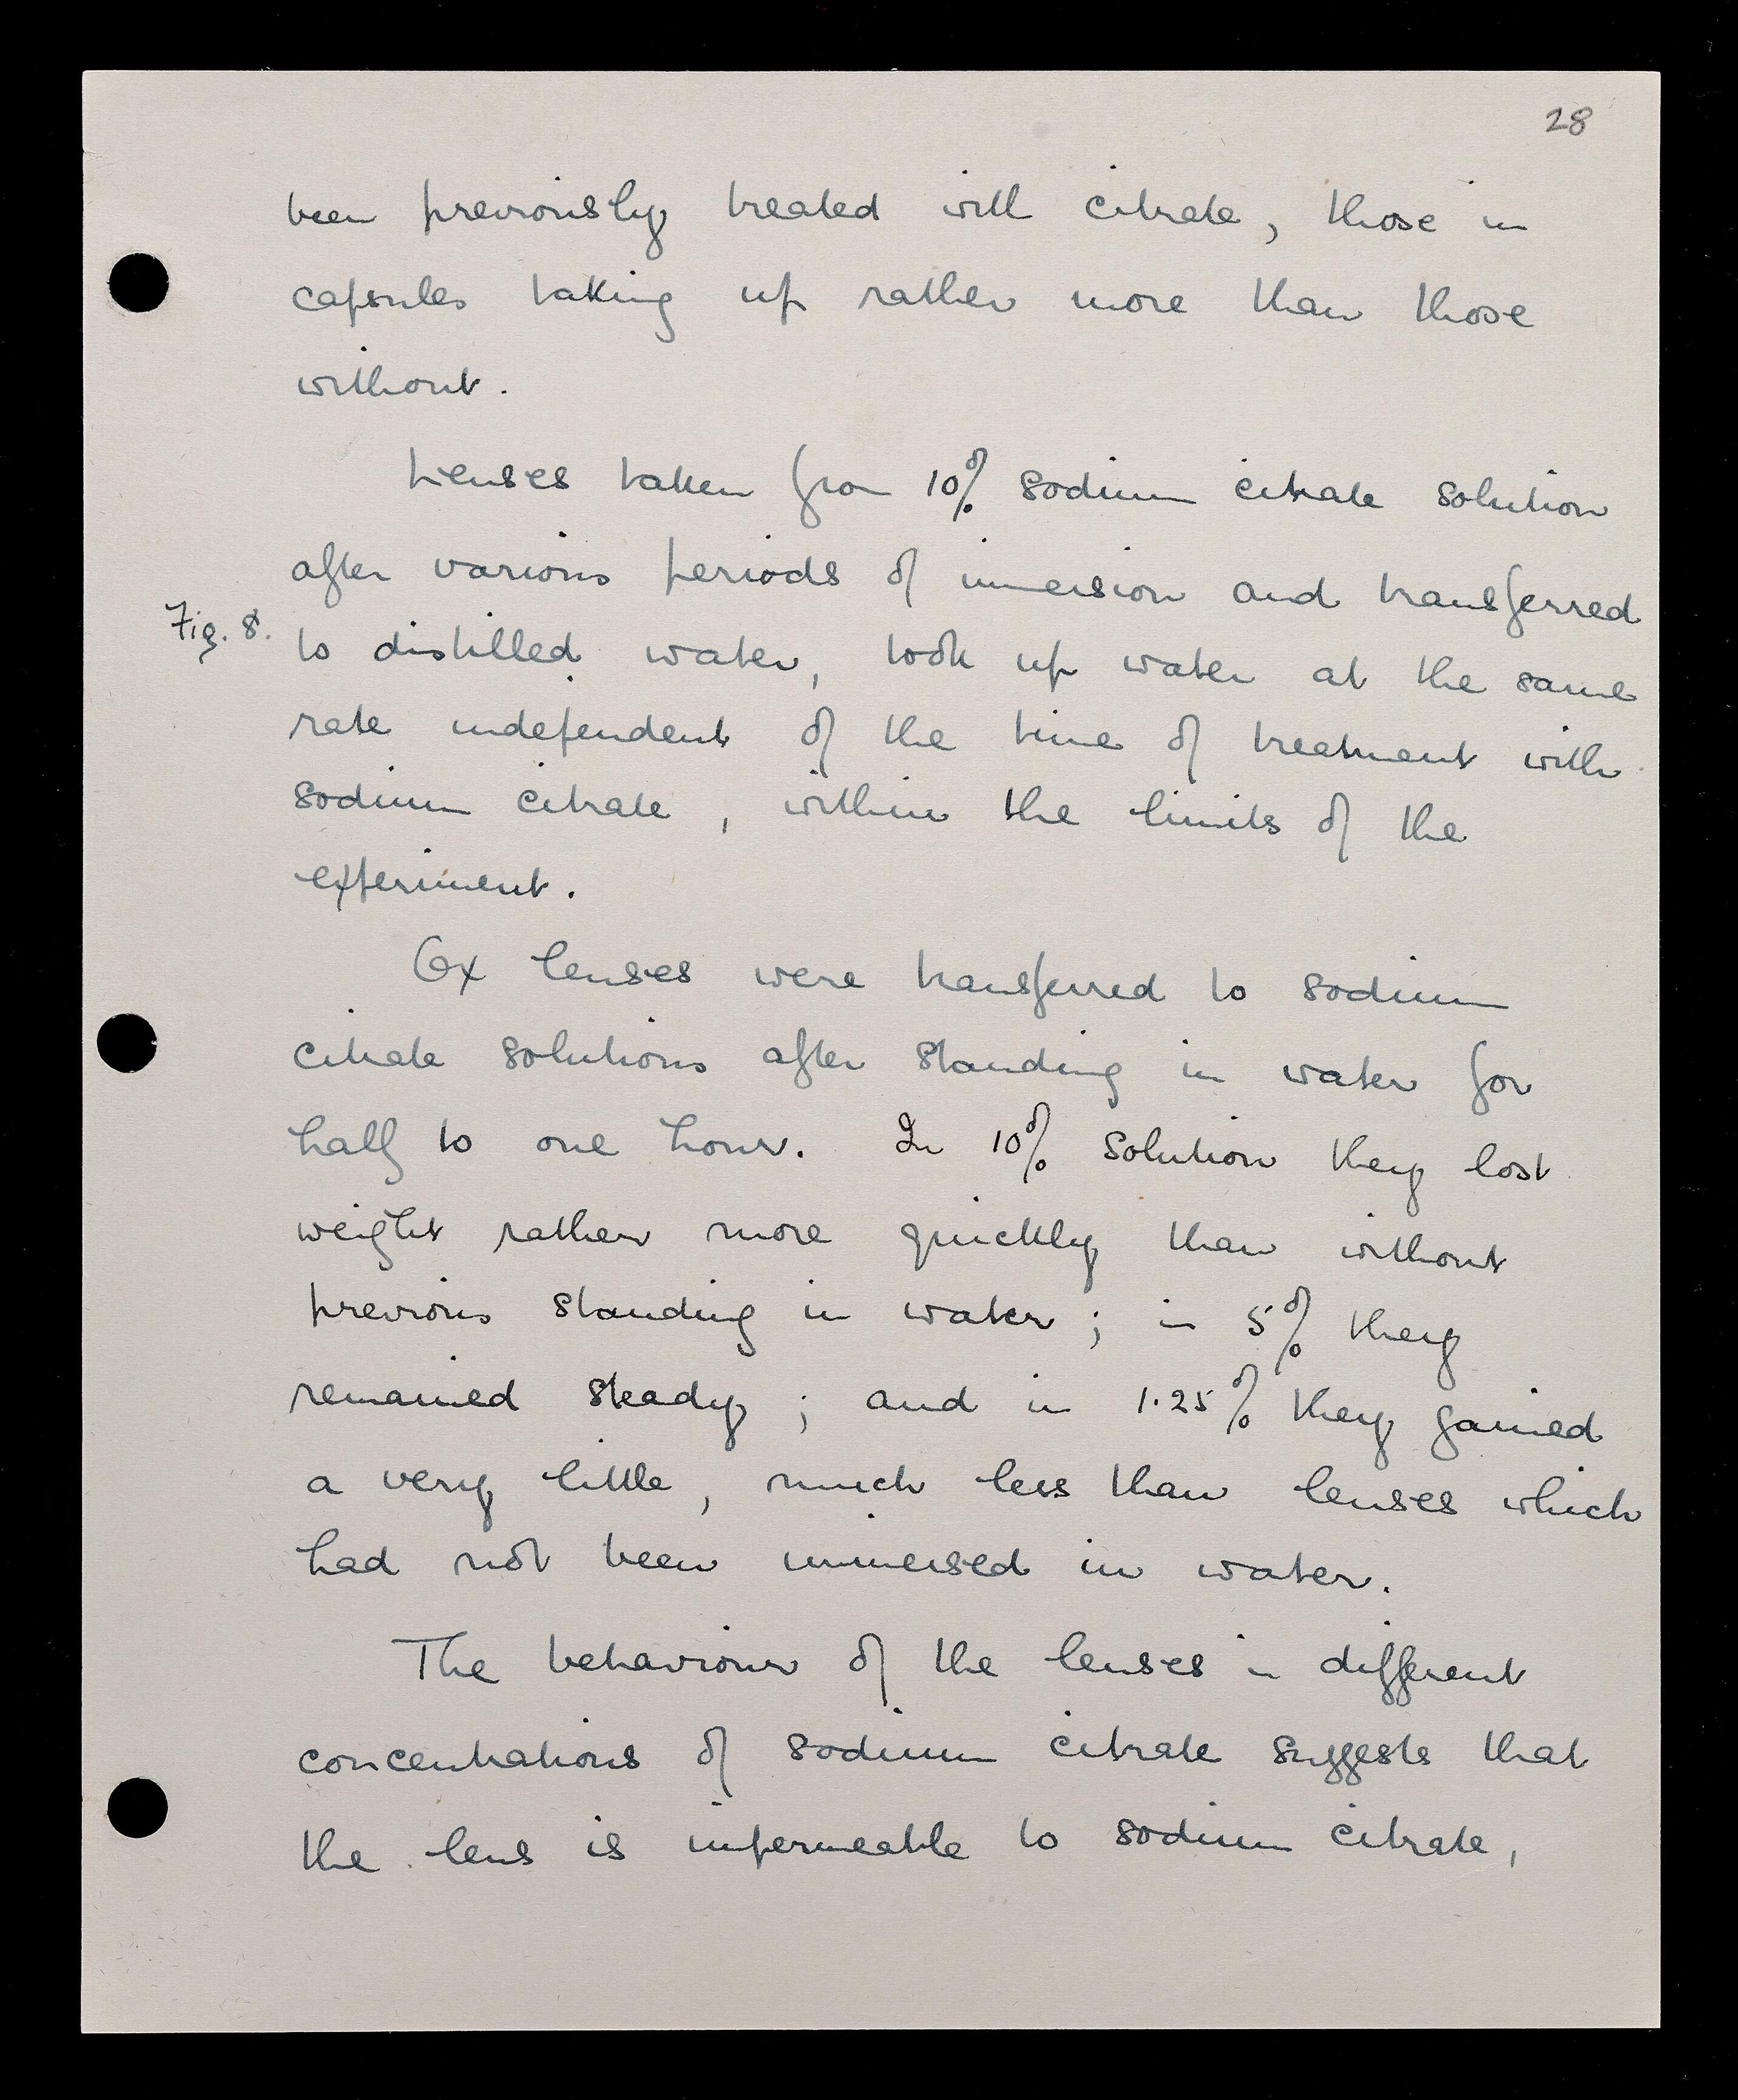 28
been previously treated with citrate, those in
capsules taking up rather more than those
without.
Lenses taken from 10% sodium citrate solution
after various periods of immersion and transferred
Fig. 8.
to distilled water, took up water at the same
rate independent of the time of treatment with
sodium citrate, within the limits of the
experiment.
Ox lenses were transferred to sodium
citrate solutions after standing in water for
half to one hour. In 10% solution they lost
weight rather more quickly than without
previous standing in water; in 5% they
remained steady; and in 1.25% they gained
a very little, much less than lenses which
had not been immersed in water.
The behaviour of the lenses in different
concentrations of sodium citrate suggests that
the lens is impermeable to sodium citrate,